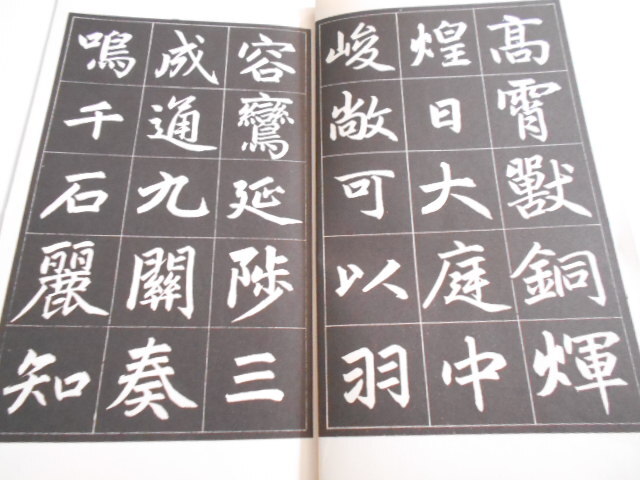 高霄獸銅輝
煌日大庭中
峻敞可以羽
容鸞延陟三
成通九關奏
鳴千石麗知